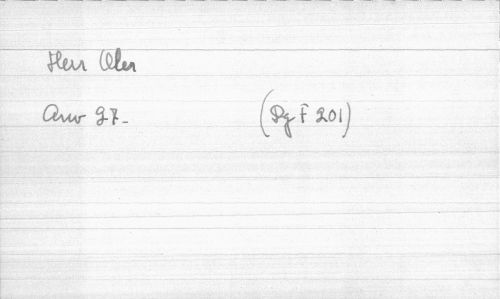 Herr Oler
Anw 27- (Pg F 201)